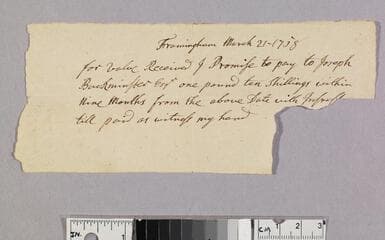 Framingham March 21-1758
for value Received I Promise to pay to Joseph
Buckminster Esqr one pound ten Shillings within
Nine Months from the above Date with Intrest
till paid as witness my hand
IN.
CM 1 2 3